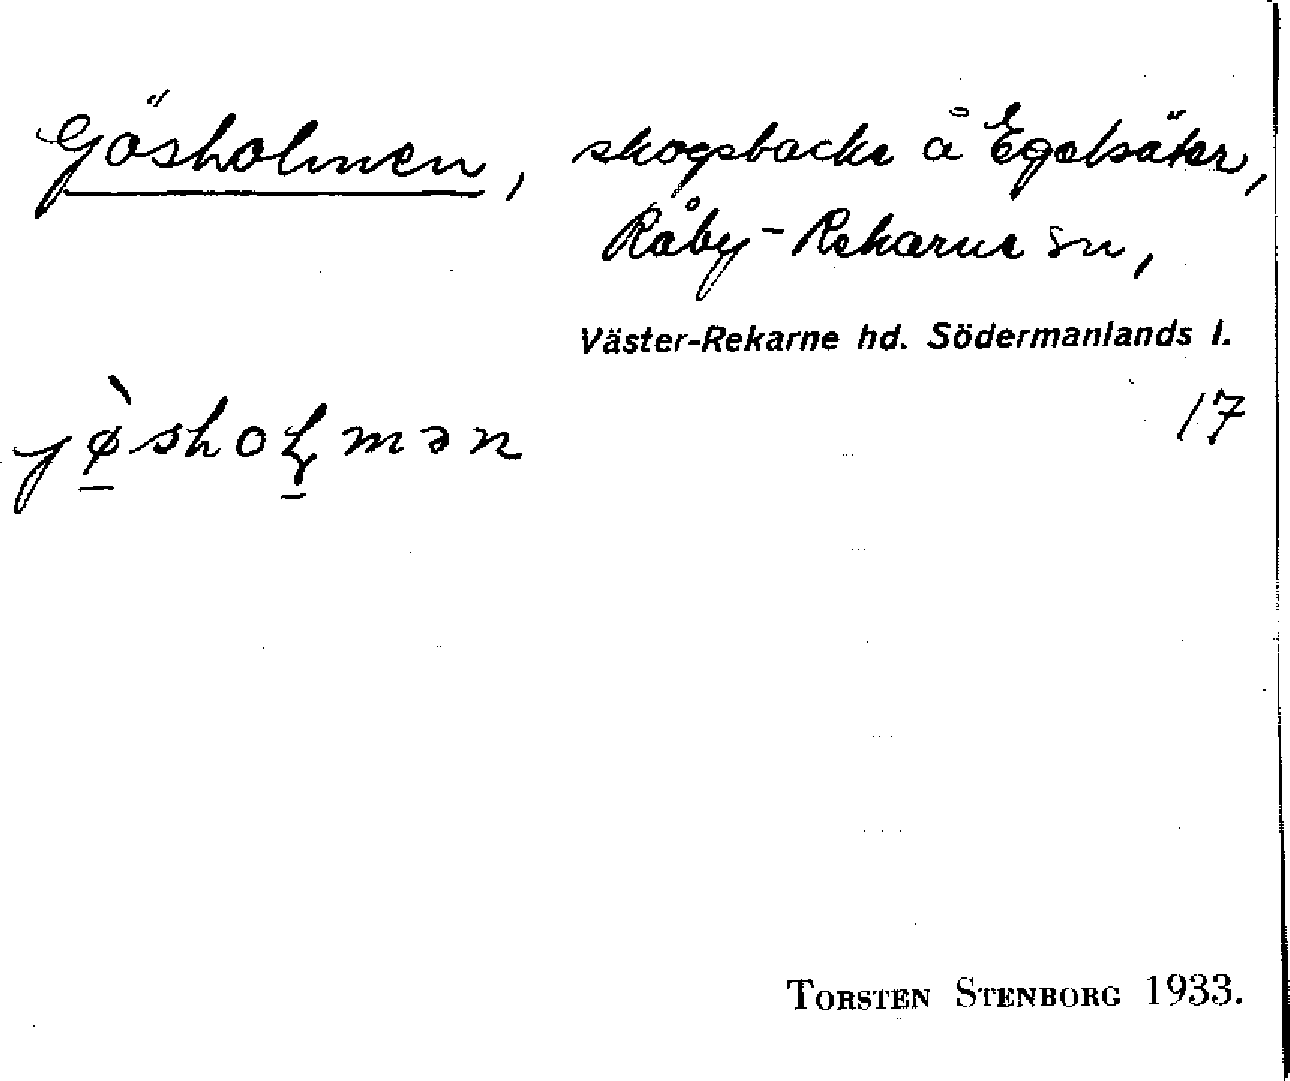 Gösholmen, skogsbacke å Egelsäter,
Råby-Rekarne sn,
Väster-Rekarne hd. Södermanlands l.
17
jø̀sholmən
TORSTEN STENBORG 1933.